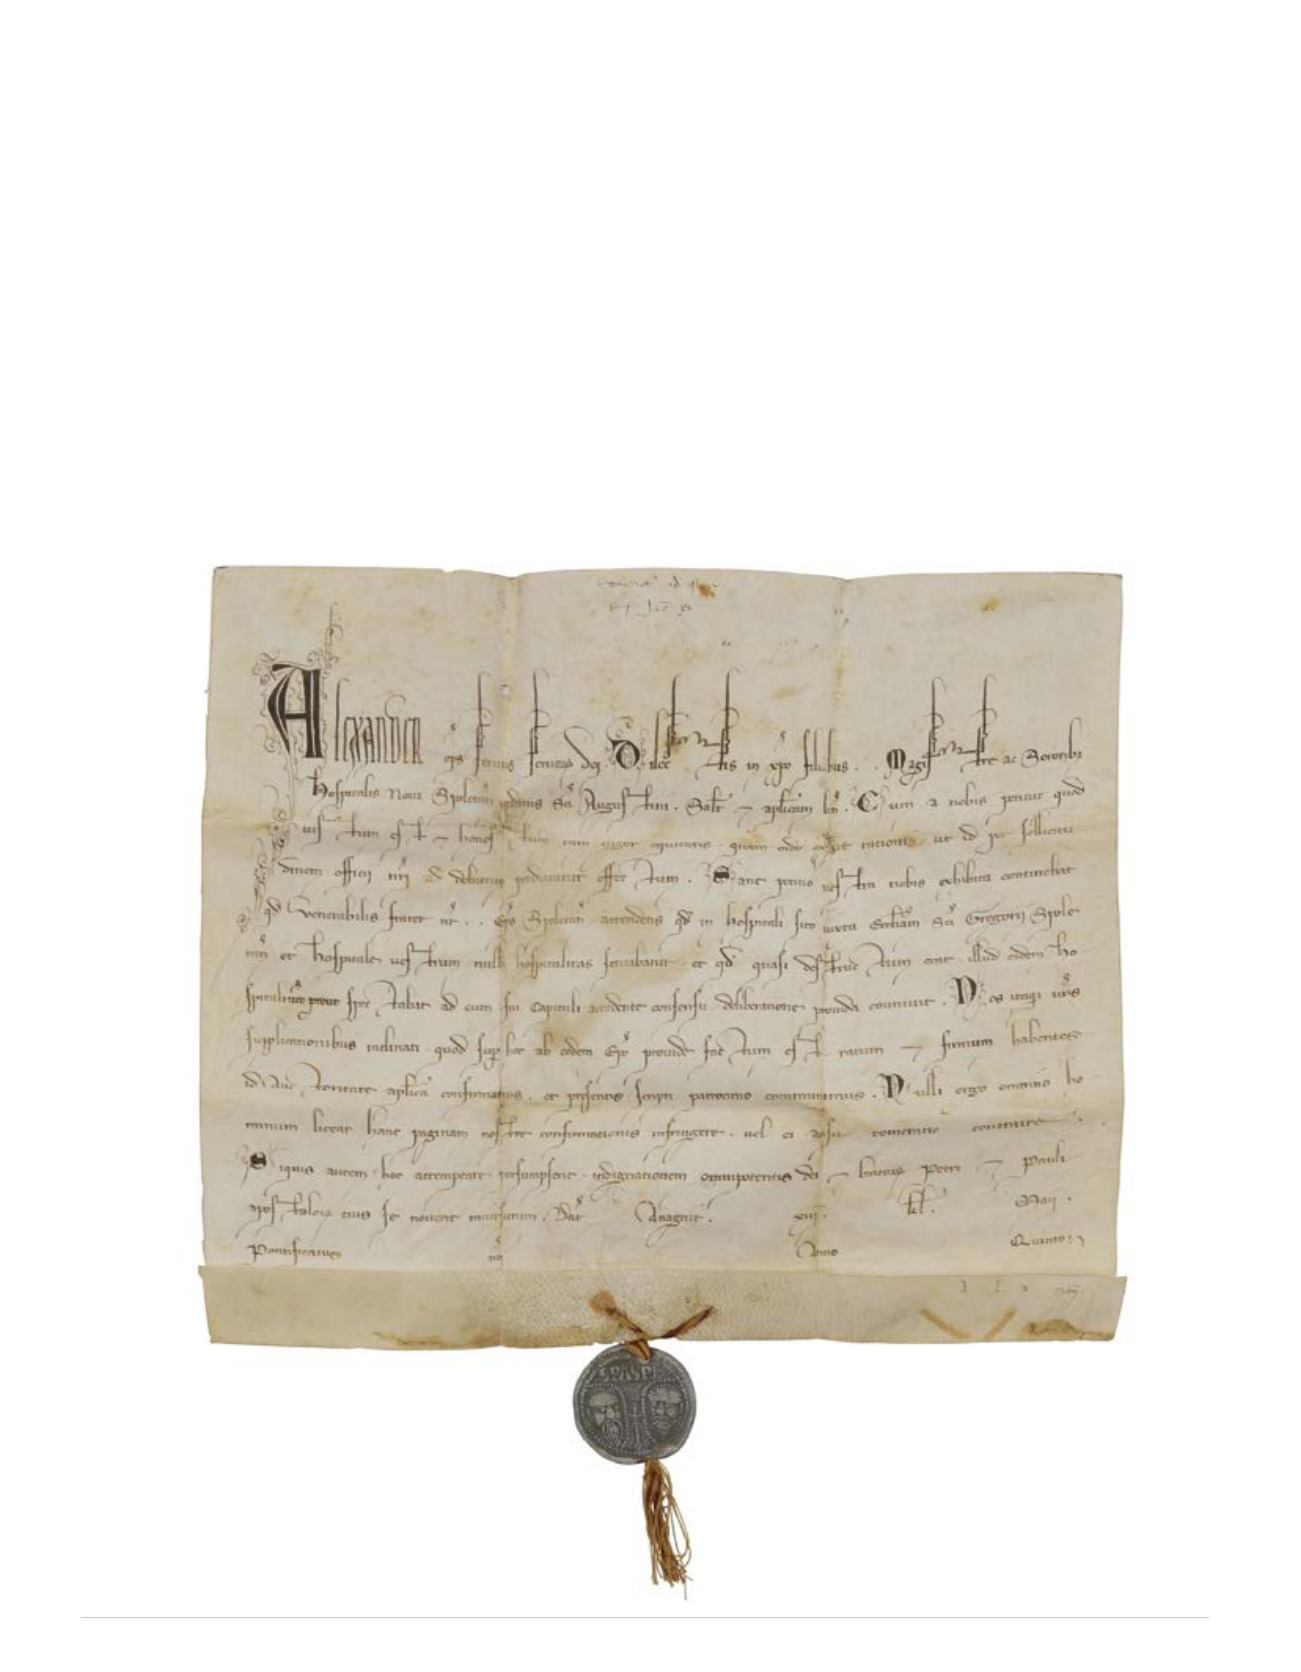 Alexander ep̄s seruus seruoꝝ dei. Dilectis in xp̄o filiabus . . Magistre ac Sororibꝫ
Hospitalis Noui Spoletan̄ ordinis Sc̄i Augustini. Salt̄ ⁊ aplicam bn̄. Cum a nobis petitur quod
iustum est ⁊ honestum tam uigor equitatis quam ordo exigit rationis ut id per sollicitu
dinem officij nr̄i ad debitum perducatur effectum. Sane petitio uestra nobis exhibita continebat
qd̄ Venerabilis frater nr̄ . . Ep̄s Spoletan̄ attendens qd̄ in hospitali sito iuxta Eccl̄iam Sc̄i Gregorij Spole
tan̄ et hospitale uestrum nulla hospitalitas seruabatur et qd̄ quasi destructum erat illud eidem ho
spitali uro prout spectabat ad eum sui Capituli accedente consensu deliberatione prouida Nos itaqꝫ ur̄is
supplicationibus inclinati quod super hoc ab eodem Ep̄o prouide factum est ratum ⁊ firmum habentes
id auctoritate aplica confirmamus. et presentis scripti patrocinio communimus. Nulli ergo omnino ho
minum liceat hanc paginam nostre confirmationis infringere. uel ei ausu temerario contraire.
Siquis autem hoc attemptare presumpserit. indignationem omnipotentis dei ⁊ beatoꝝ Petri ⁊ Pauli
apostoloꝝ eius se nouerit incursurum. Dat̄ Anagnie. viii. kl̄. Maij.
Pontificatus nr̄i Anno Quinto
SPASPE